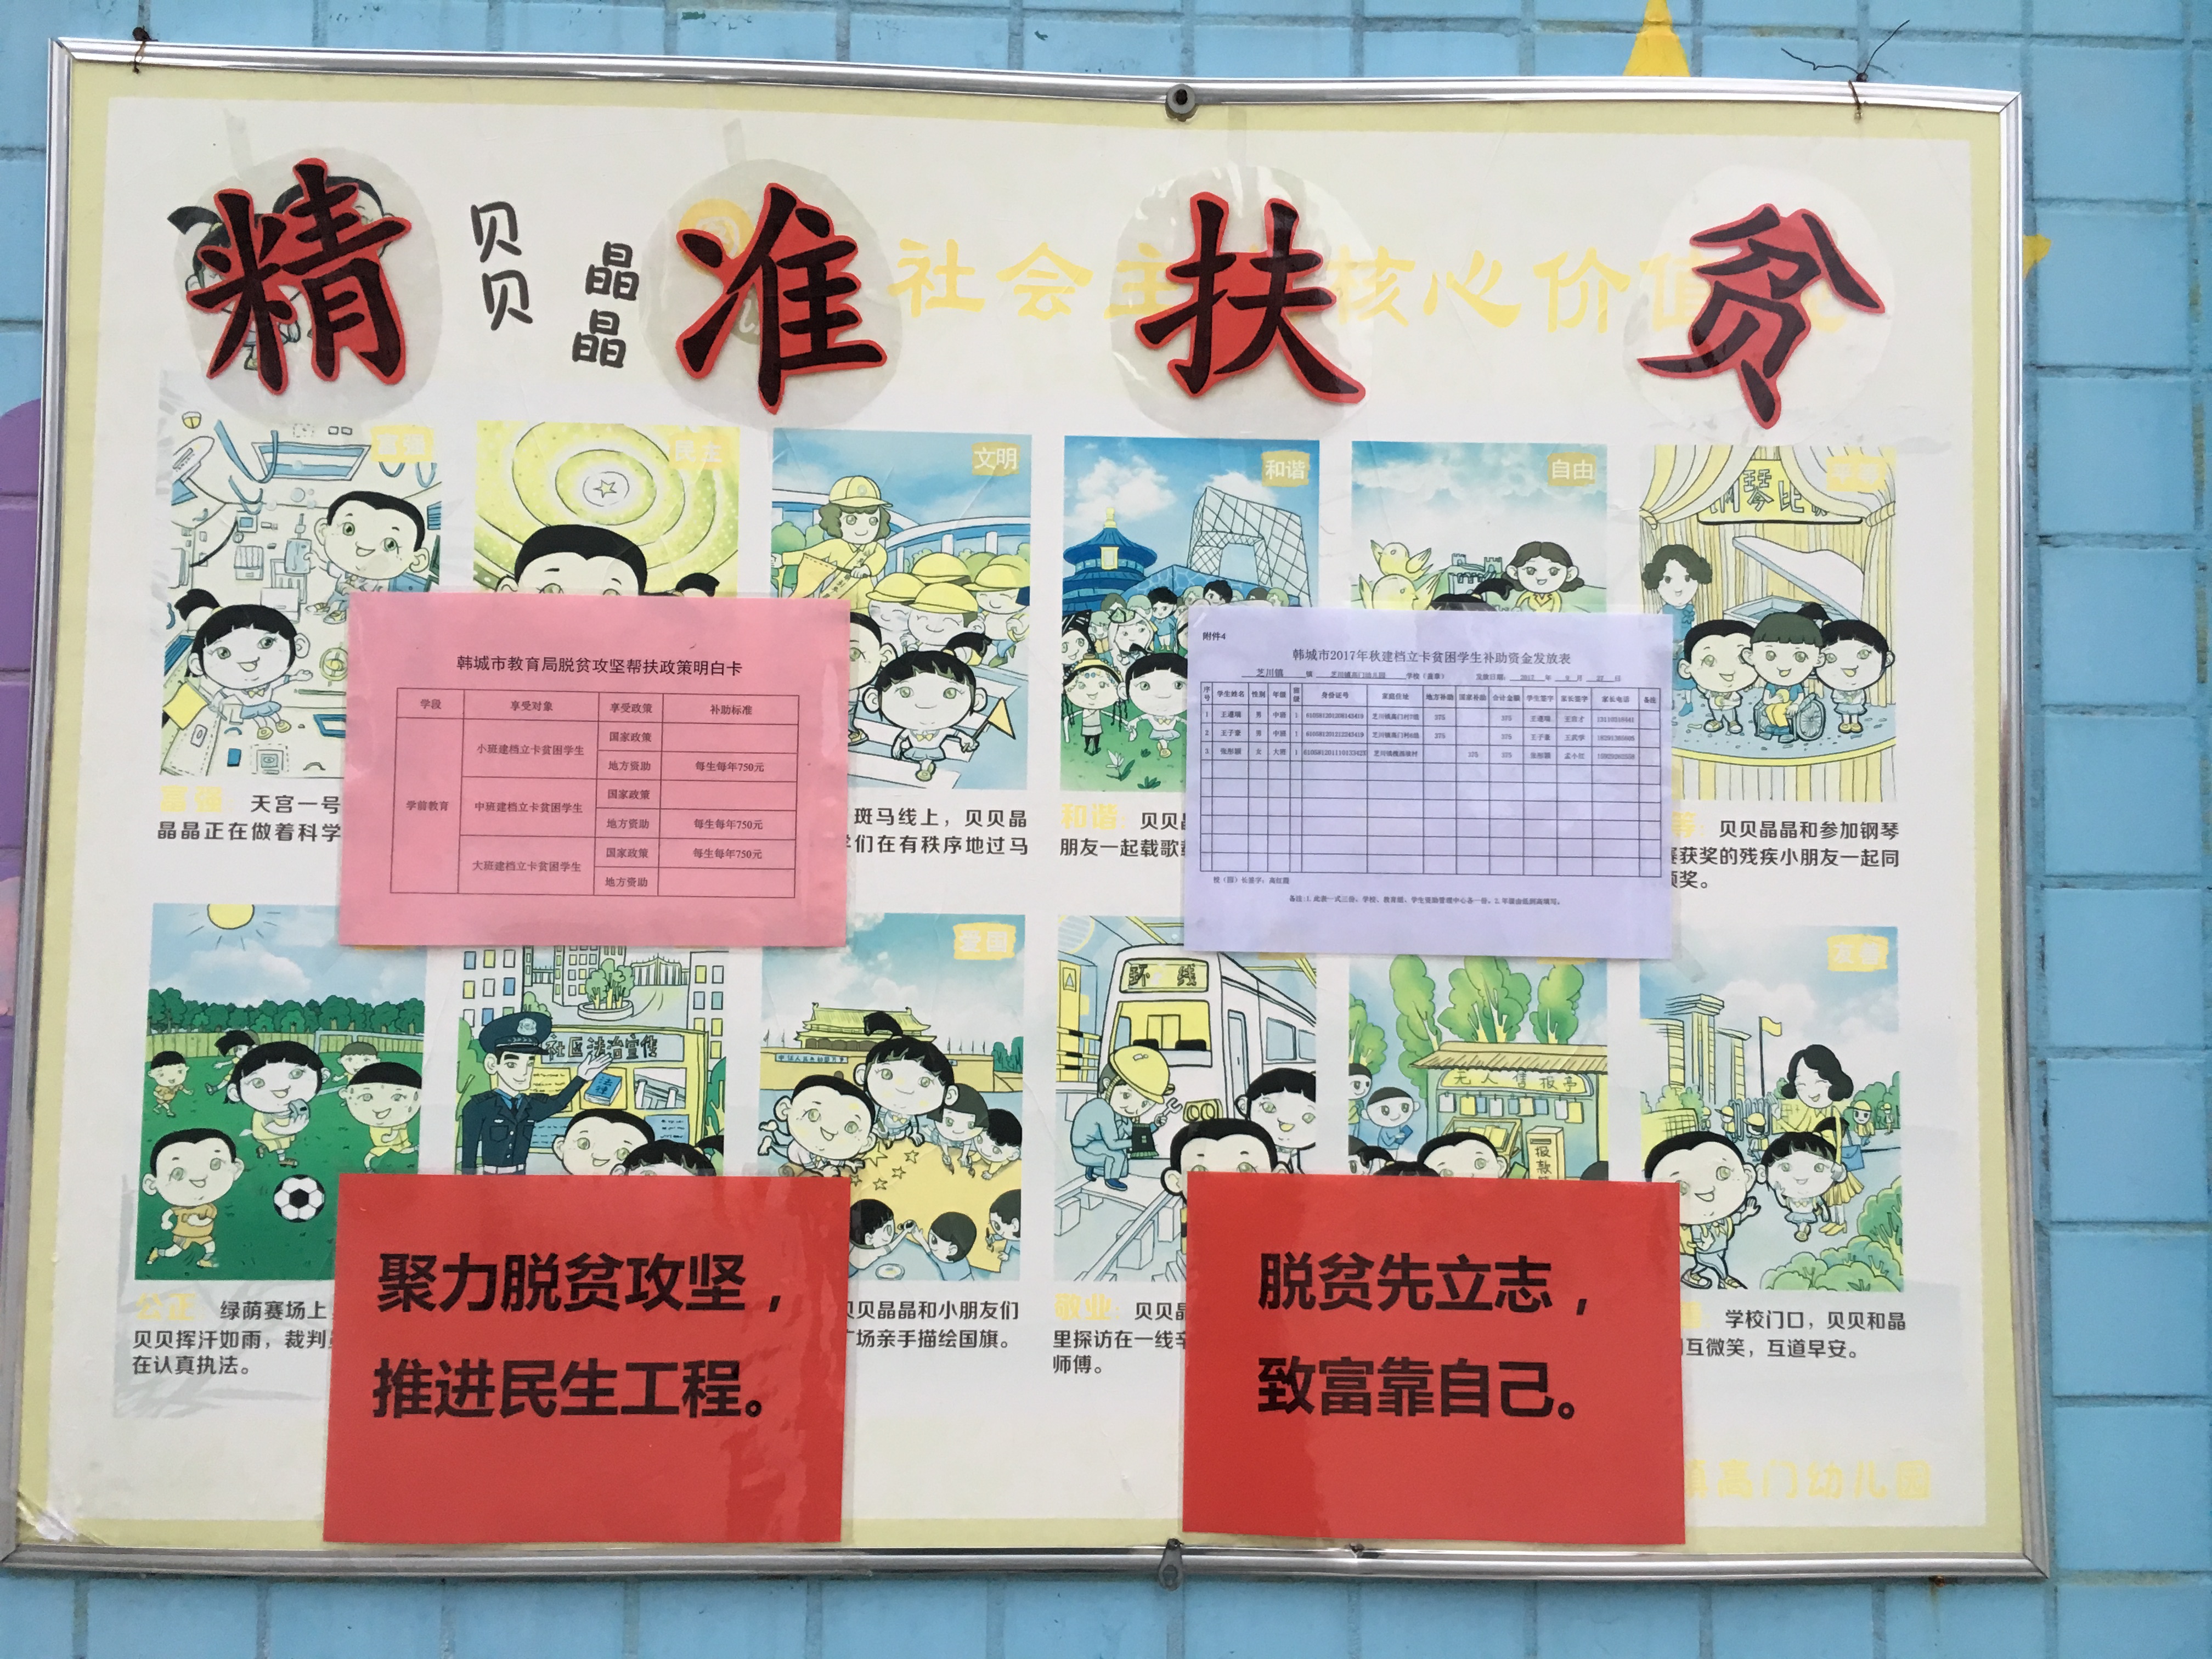 精准扶贫
贝贝
晶晶
社会主
核心价值
富强
民主
文明
和谐
自由
平等
钢琴比
韩城市教育局脱贫攻坚帮扶政策明白卡
学段 享受对象 享受政策 补助标准
学前教育
小班建档立卡贫困学生
国家政策
地方资助 每生每年750元
中班建档立卡贫困学生
国家政策
地方资助 每生每年750元
大班建档立卡贫困学生
国家政策 每生每年750元
地方资助
附件4
韩城市2017年秋建档立卡贫困学生补助资金发放表
芝川镇 镇 芝川镇高门幼儿园 学校（盖章） 发放日期： 2017 年 9 月 27 日
序号 学生姓名 性别 年级 班级 身份证号 家庭住址 地方补助 国家补助 合计金额 学生签字 家长签字 家长电话 备注
1 男 中班 1 375 375
2 男 中班 1 375 375
3 女 大班 1 375 375
校（园）长签字：
备注:1.此表一式三份，学校、教育组、学生资助管理中心各一份。2.年级由低到高填写。
富强：天宫一号
晶晶正在做着科学
斑马线上，贝贝晶
们在有秩序地过马
和谐：贝贝
朋友一起载歌
等：贝贝晶晶和参加钢琴
赛获奖的残疾小朋友一起同
领奖。
社区法治宣传
法律
爱国
环线
无人售报亭
报款
友善
公正：绿荫赛场上
贝贝挥汗如雨，裁判
在认真执法。
贝贝晶晶和小朋友们
广场亲手描绘国旗。
敬业：贝贝
里探访在一线辛
师傅。
学校门口，贝贝和晶
互微笑，互道早安。
聚力脱贫攻坚，
推进民生工程。
脱贫先立志，
致富靠自己。
镇高门幼儿园